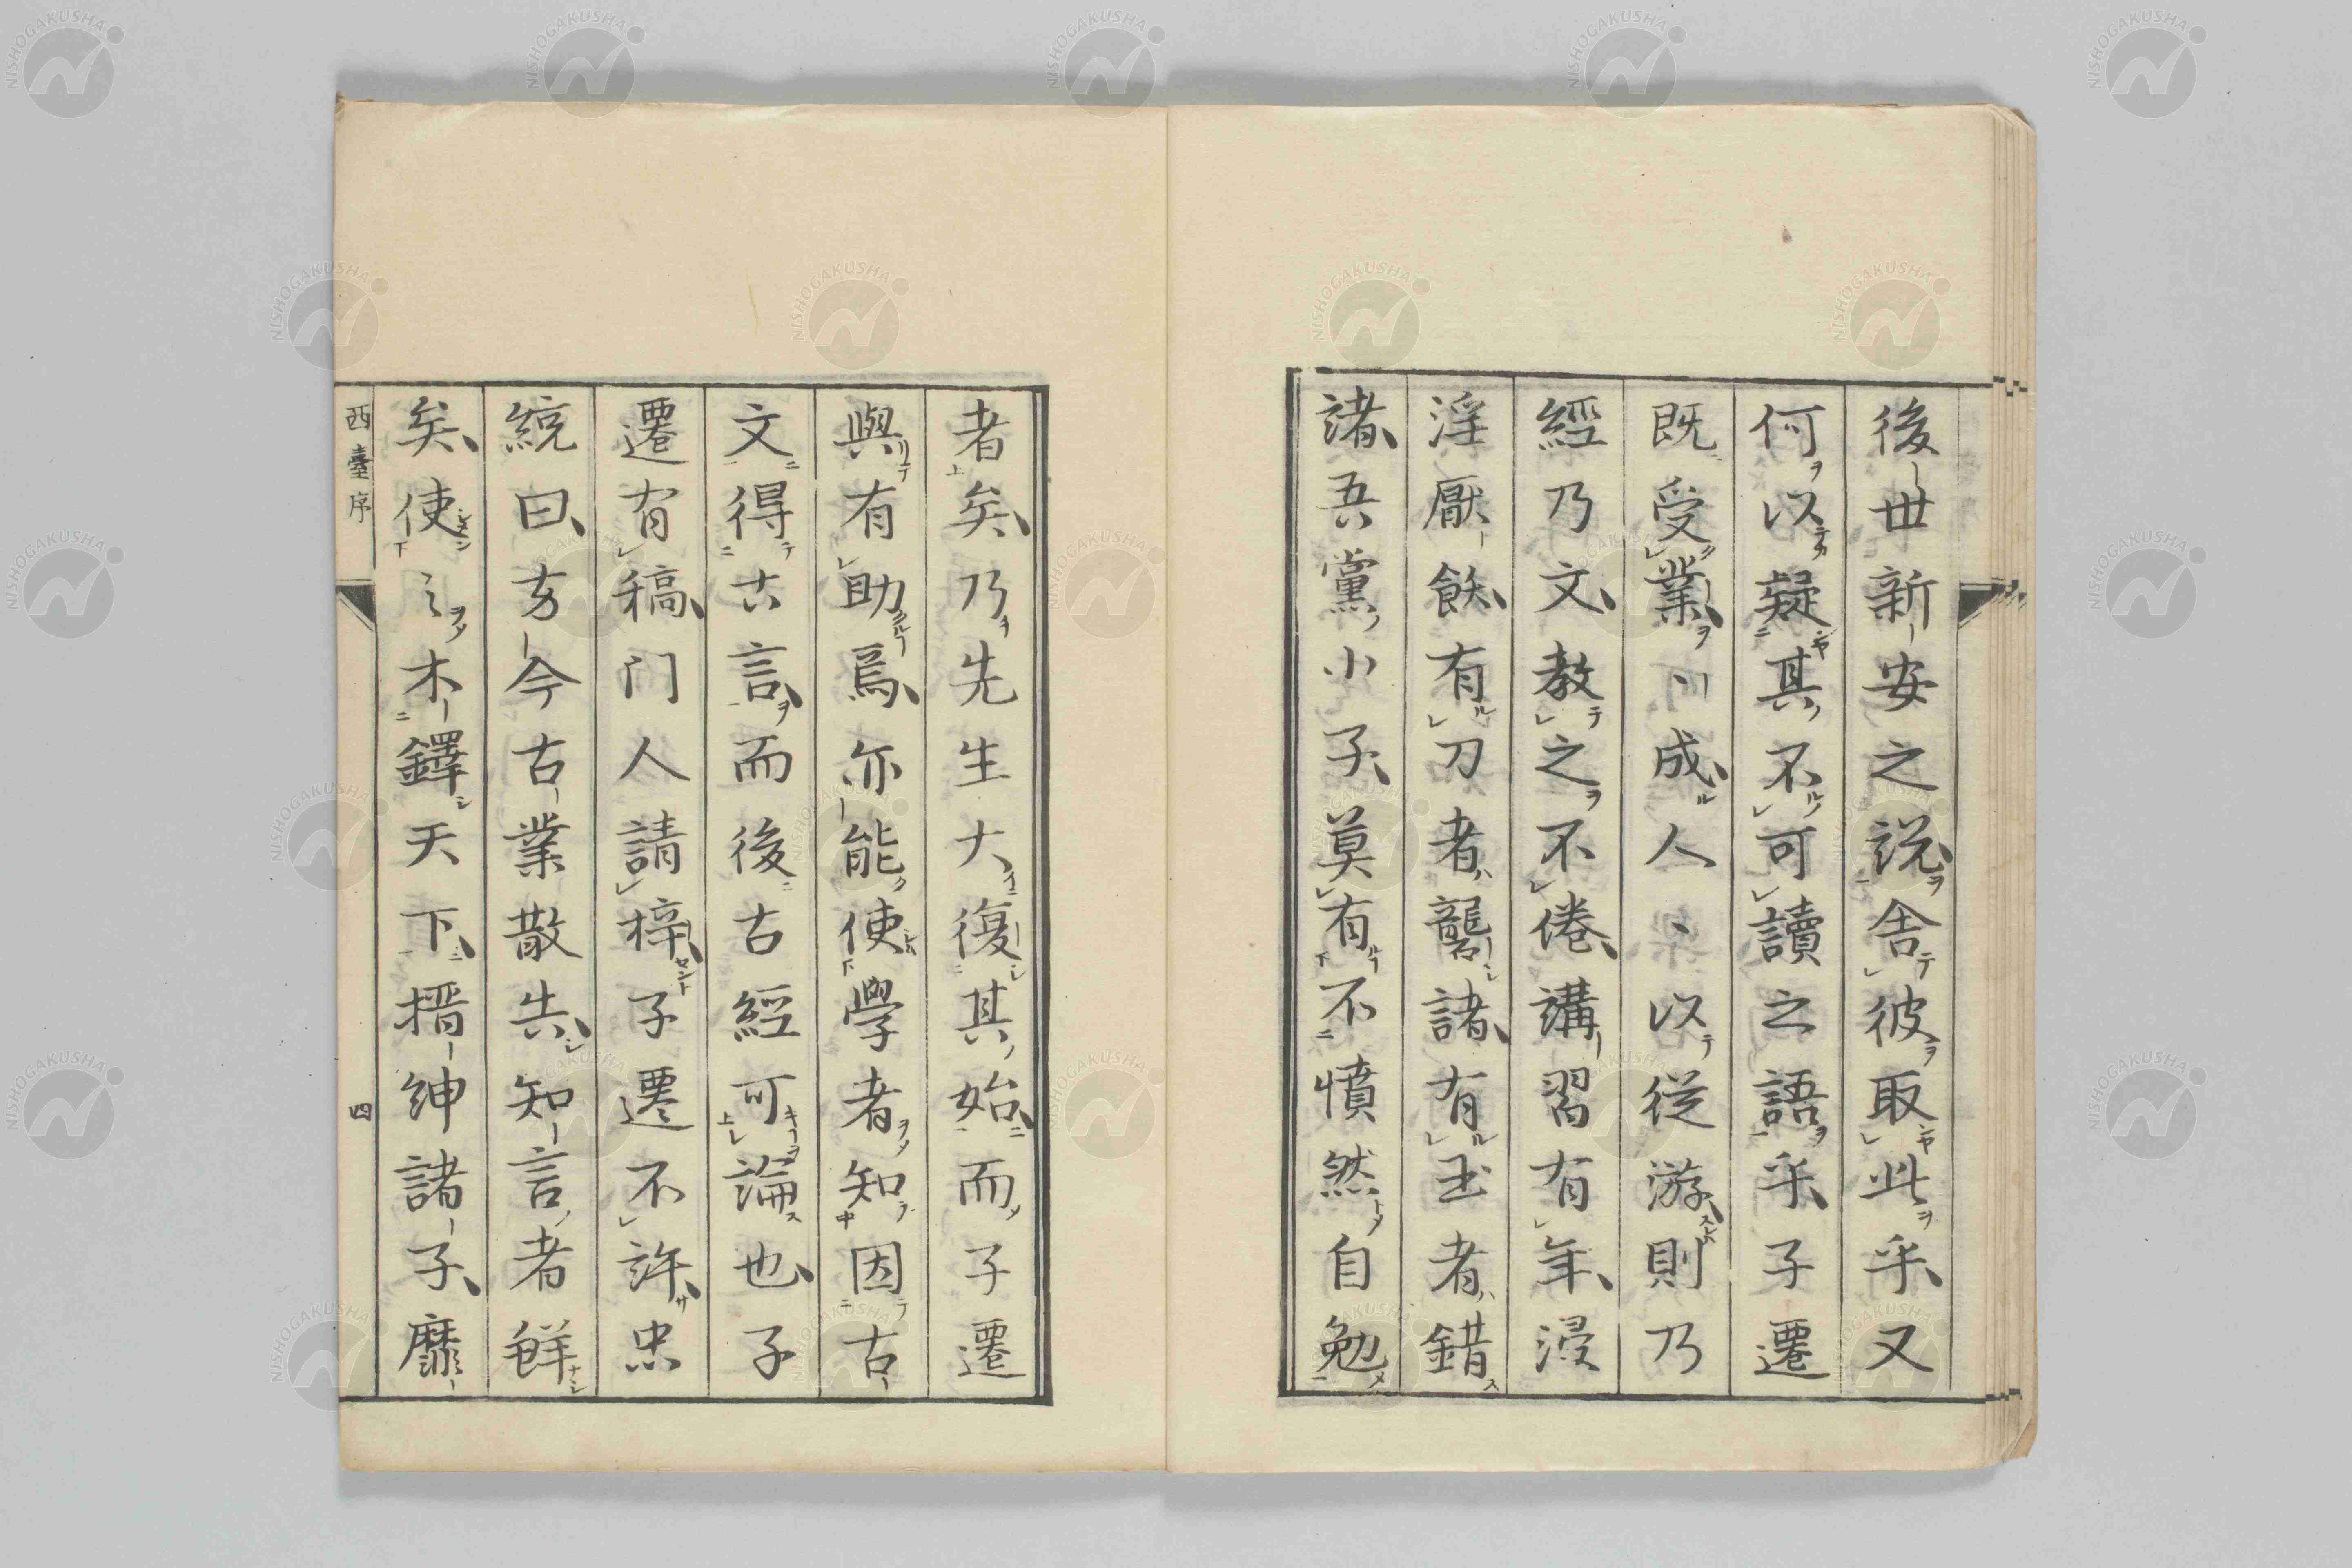 後世新安之説舎彼取此乎又
何以疑其不可讀之語乎子遷
既受業〻成人〻以従游則乃
經乃文教之不倦講習有年浸
淫厭飫有刀者礱諸有玉者錯
諸吾黨小子莫有不憤然自勉
者矣乃先生大復其始而子遷
與有助焉亦能使學者知因古
文得古言而後古經可論也子
遷有稿門人請梓子遷不許忠
統曰方今古業散告知言者鮮
矣使之木鐸天下搢紳諸子靡
西臺序
四
NISHOGAKUSHA